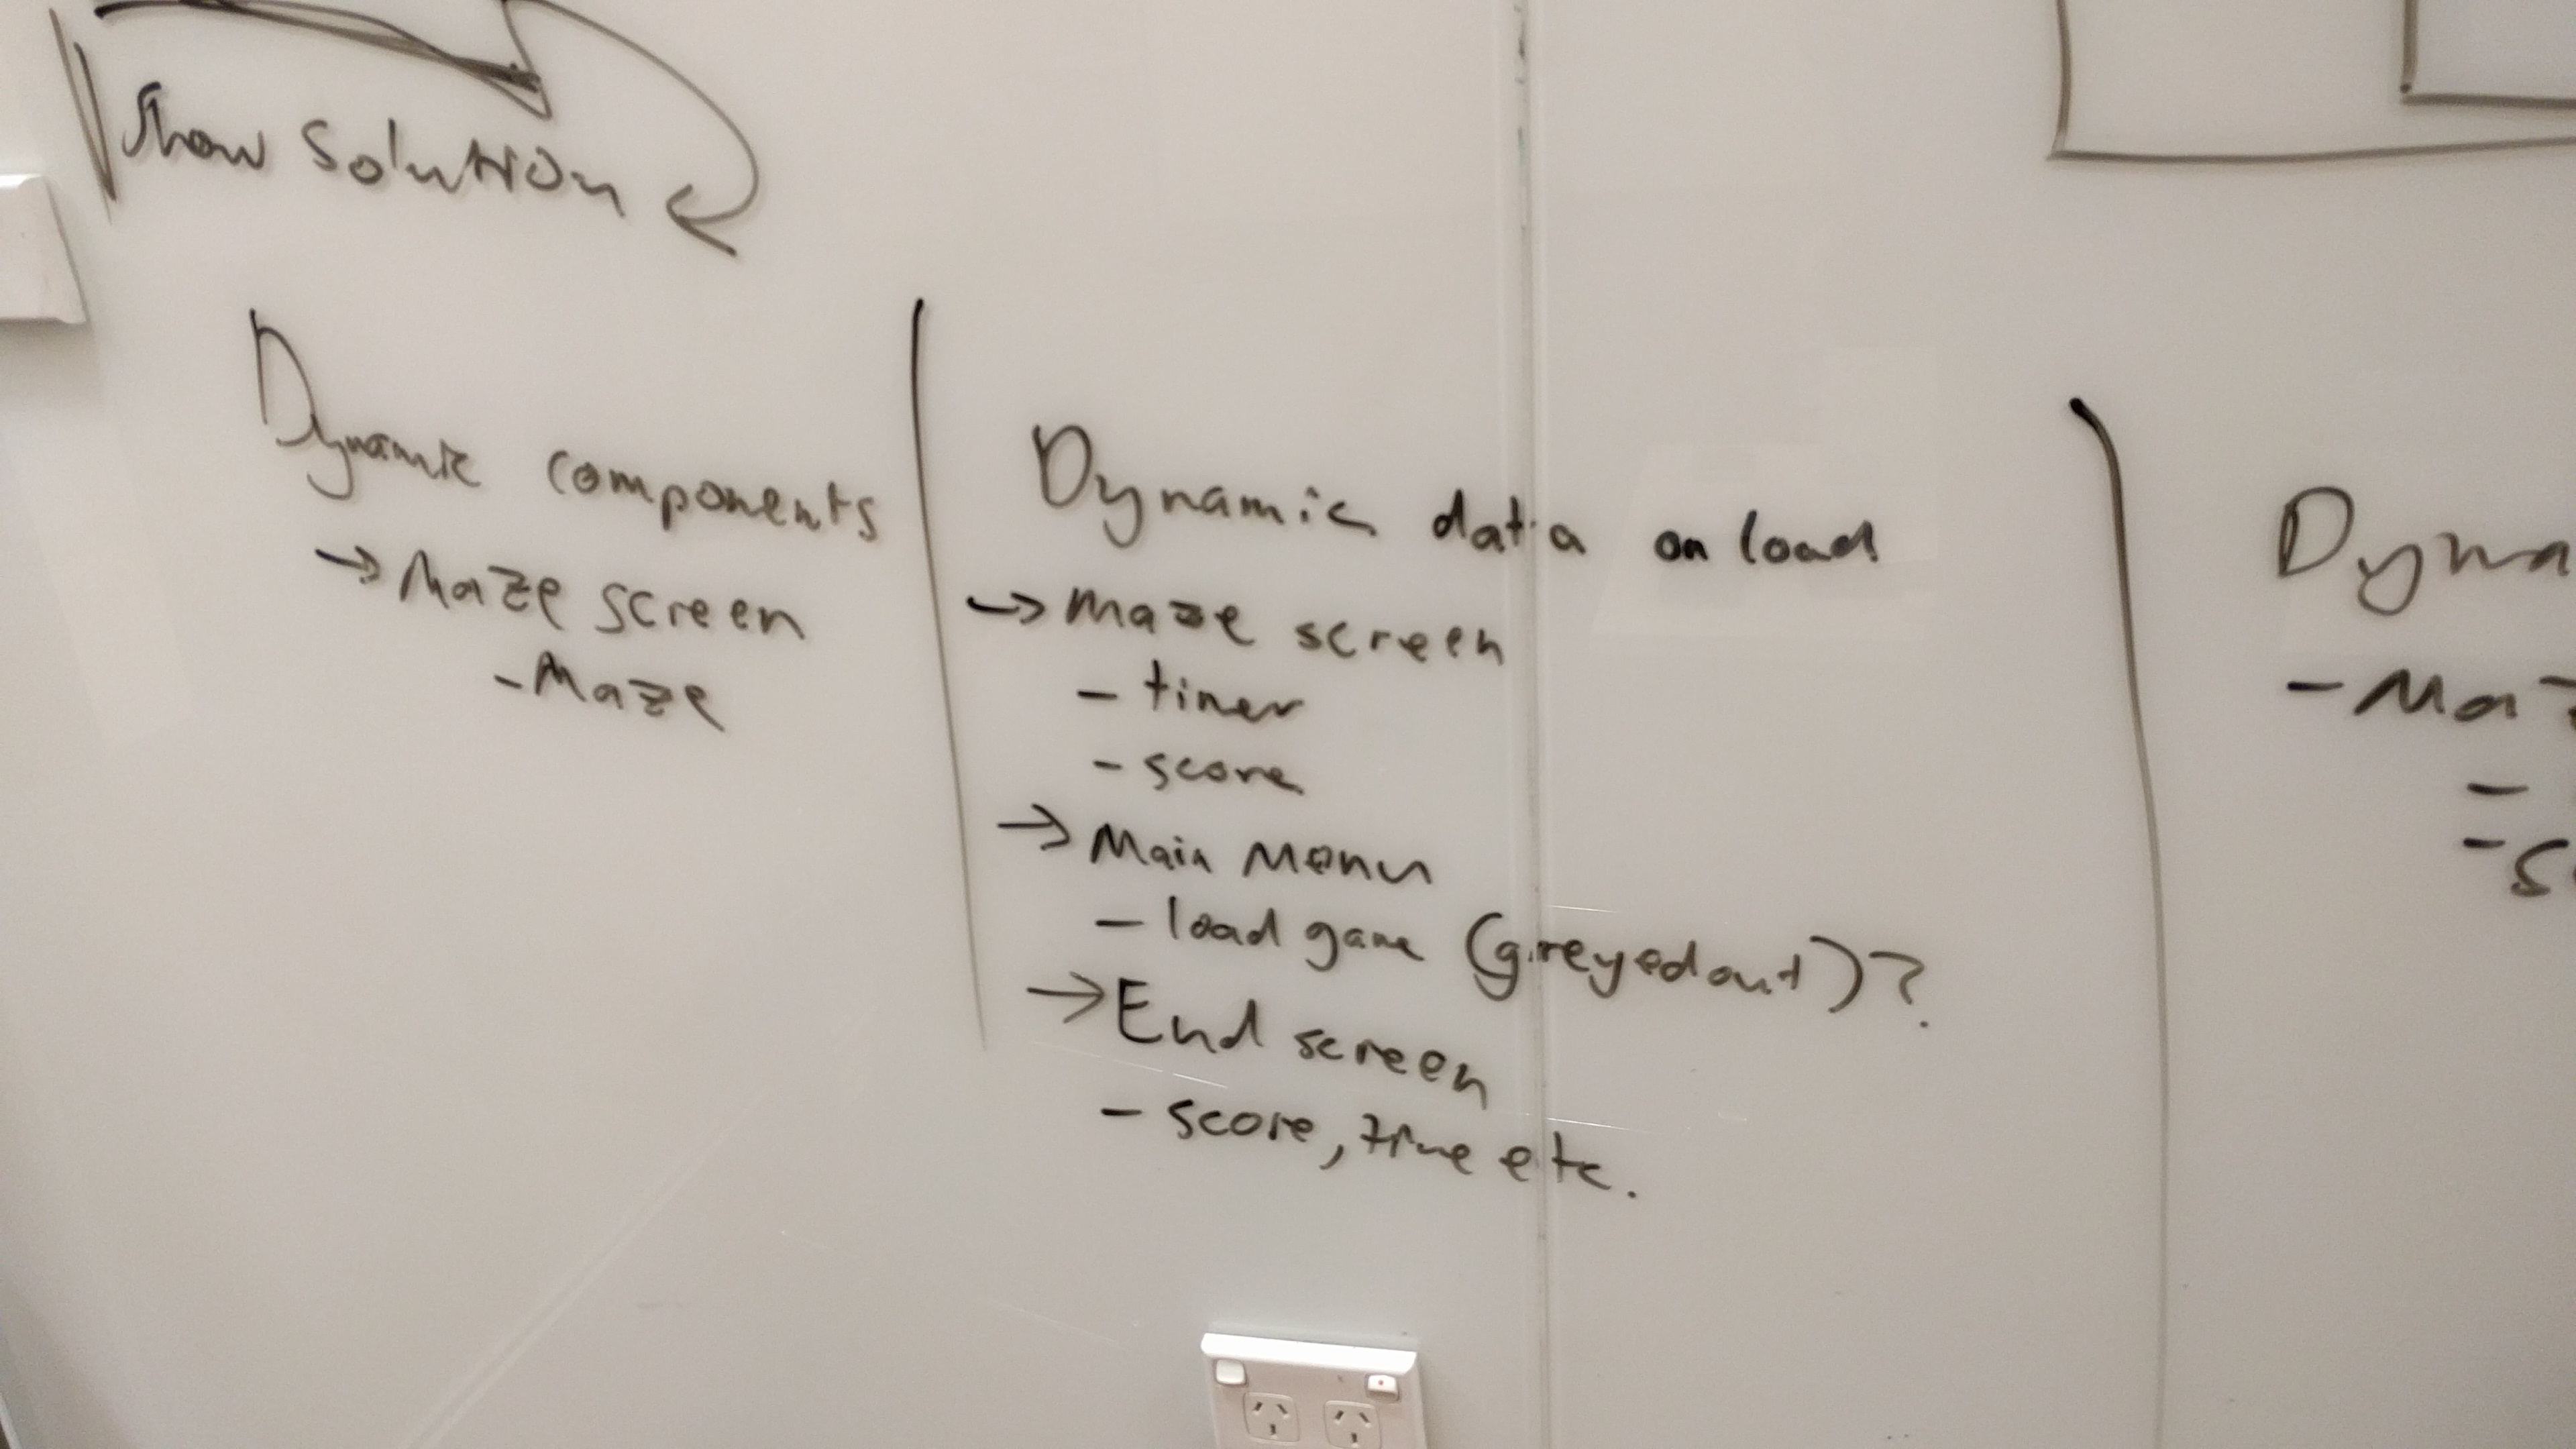 Show solution
Dynamic components
→ Maze screen
- Maze
Dynamic data on load
→ Maze screen
- timer
- score
→ Main Menu
- load game (greyedout)?
→ End screen
- score, time etc.
Dyna
- Maz
-
- S